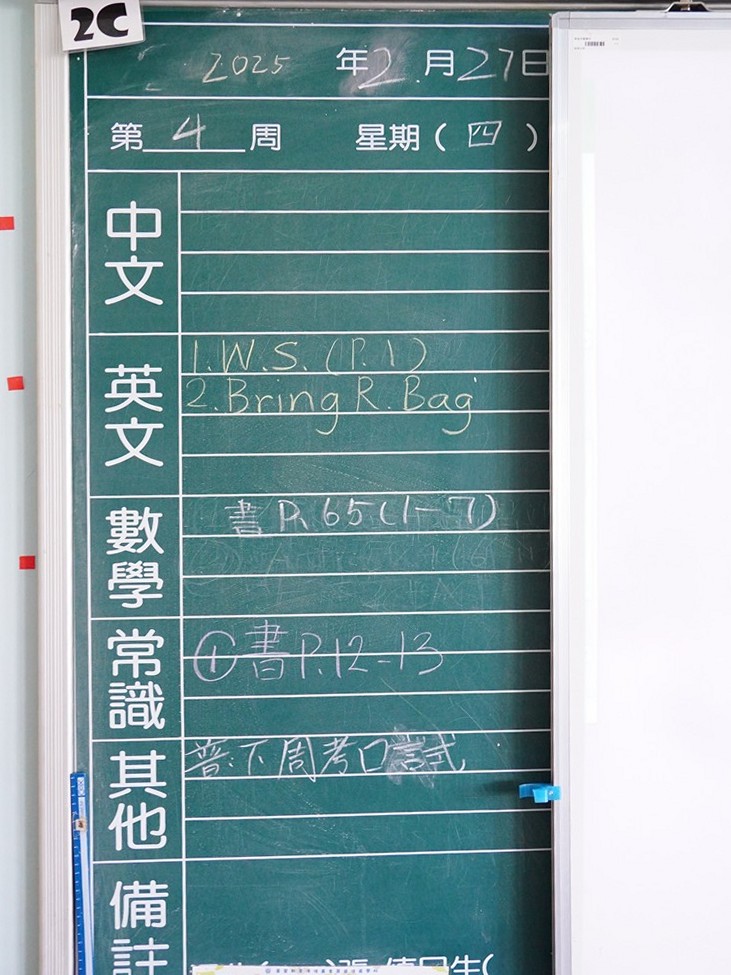 2C
2025 年 2 月 27 日
第 4 周 星期 ( 四 )
中文
英文
1. W.S. (P. 1)
2. Bring R. Bag
數學
書 P. 65 (1-7)
常識
① 書 P. 12-13
其他
普: 下周考口試
備註